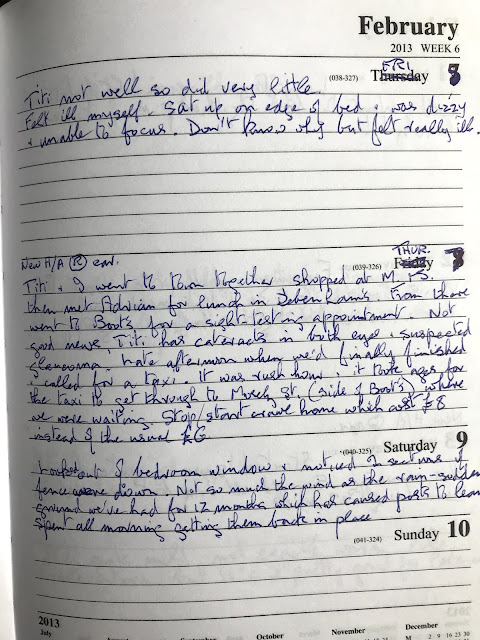 February
2013 WEEK 6
(038-327) Thursday FRI. 8
Titi not well so did very little.
Felt ill myself. Sat up on edge of bed & was dizzy
& unable to focus. Don't know why but felt really ill.
(039-326) Friday THUR. 7
New H/A (R) ear.
Titi & I went to town together shopped at M.&S.
then met Adrian for lunch in Debenhams. From there
went to Boot's for a sight-testing appointment. Not
good news, Titi has cataracts in both eyes & suspected
glaucoma. Late afternoon when we'd finally finished
& called for a taxi. It was rush hour & it took ages for
the taxi to get through to Morley St (side of Boot's) where
we were waiting. Stop/start crawl home which cost £8
instead of the usual £6
(040-325) Saturday 9
Looked out of bedroom window & noticed 2 sections of
fence were down. Not so much the wind as the rain-sodden
ground we've had for 12 months which has caused posts to lean
Spent all morning getting them back in place
(041-324) Sunday 10
2013
July
October
November
December
M 2 9 16 23 30